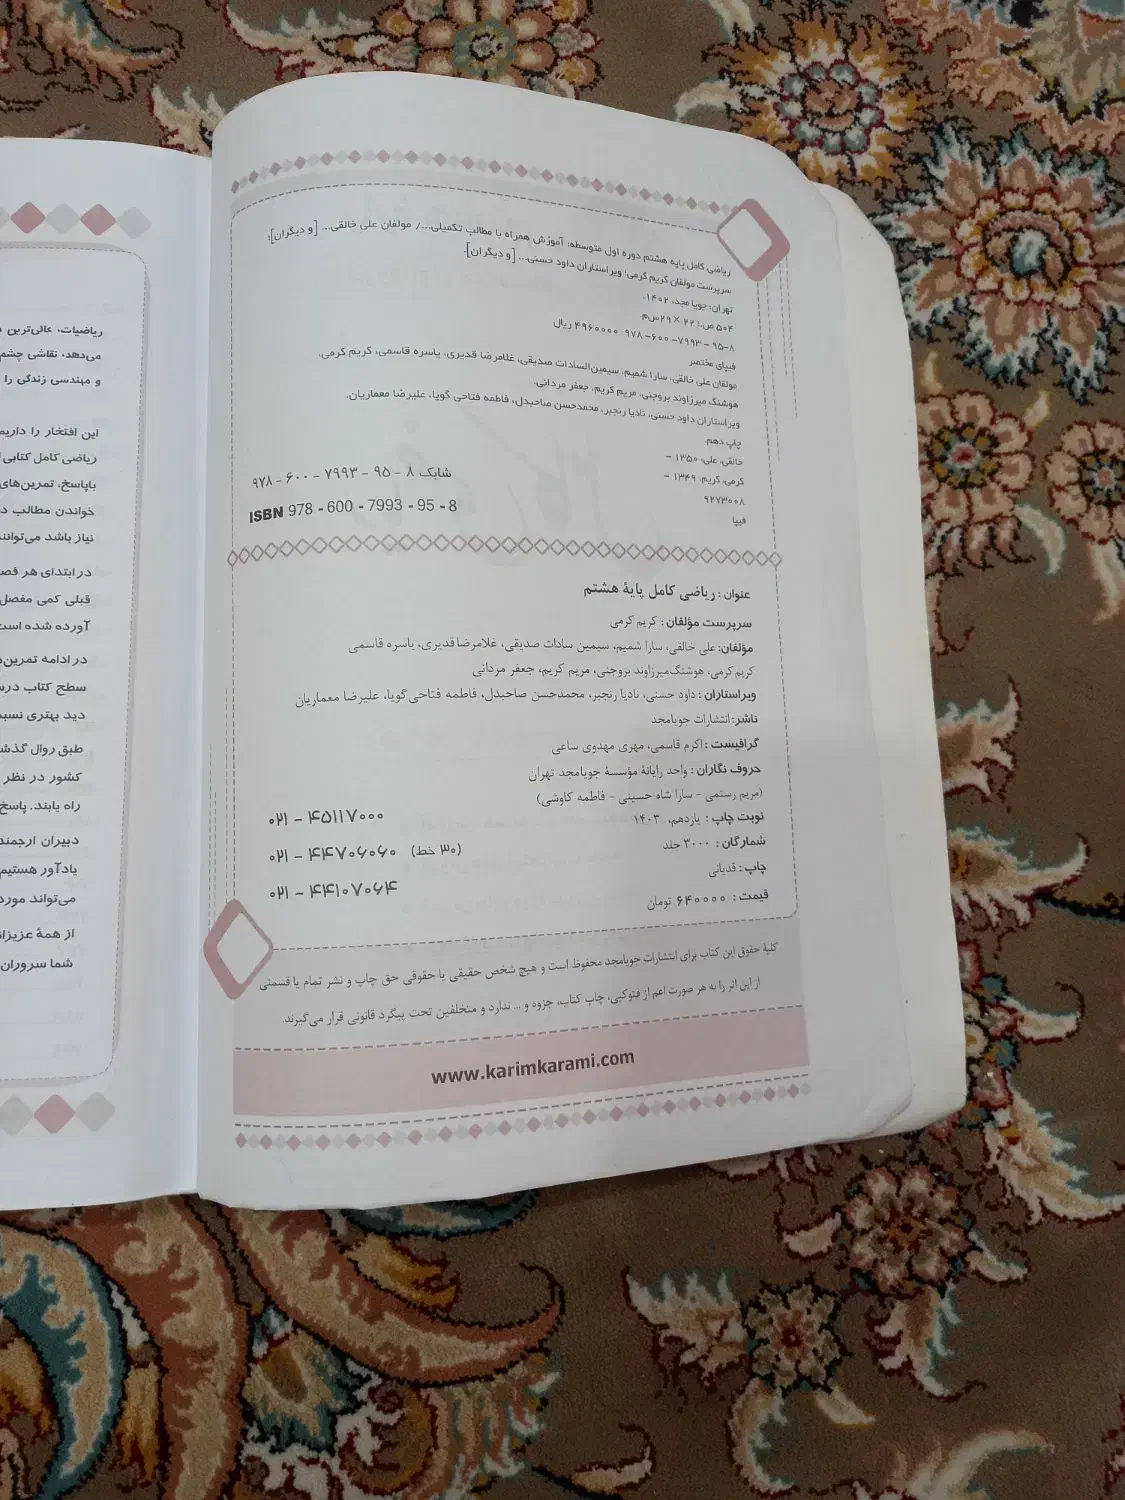 ریاضی کامل پایه هشتم دوره اول متوسطه: آموزش همراه با مطالب تکمیلی.../ مولفان علی خالقی... [و دیگران]؛
سرپرست مولفان کریم کرمی؛ ویراستاران داود حسنی... [و دیگران].
تهران: جویا مجد، ۱۴۰۲.
۵۰۴ ص.؛ ۲۲ × ۲۹ س‌م.
۹۷۸-۶۰۰-۷۹۹۳-۹۵-۸ ۴۹۶۰۰۰۰ ریال
فیپای مختصر
مولفان علی خالقی، سارا شمیم، سیمین‌السادات صدیقی، غلامرضا قدیری، یاسره قاسمی، کریم کرمی،
هوشنگ میرزاوند بروجنی، مریم کریم، جعفر مردانی.
ویراستاران داود حسنی، نادیا رنجبر، محمدحسن صاحبدل، فاطمه فتاحی گویا، علیرضا معماریان.
چاپ دهم.
خالقی، علی، ۱۳۵۰ -
کرمی، کریم، ۱۳۴۹ -
۹۲۷۳۰۰۸
فیپا
شابک ۸ - ۹۵ - ۷۹۹۳ - ۶۰۰ - ۹۷۸
ISBN 978 - 600 - 7993 - 95 - 8
عنوان : ریاضی کامل پایهٔ هشتم
سرپرست مؤلفان : کریم کرمی
مؤلفان: علی خالقی، سارا شمیم، سیمین سادات صدیقی، غلامرضا قدیری، یاسره قاسمی
کریم کرمی، هوشنگ میرزاوند بروجنی، مریم کریم، جعفر مردانی
ویراستاران : داود حسنی، نادیا رنجبر، محمدحسن صاحبدل، فاطمه فتاحی گویا، علیرضا معماریان
ناشر: انتشارات جویامجد
گرافیست : اکرم قاسمی، مهری مهدوی ساعی
حروف نگاران : واحد رایانهٔ مؤسسهٔ جویامجد تهران
(مریم رستمی - سارا شاه حسینی - فاطمه کاوشی)
نوبت چاپ : یازدهم، ۱۴۰۳
شمارگان : ۳۰۰۰ جلد
چاپ : قدیانی
قیمت : ۶۴۰۰۰۰ تومان
۰۲۱ - ۴۵۱۱۷۰۰۰
۰۲۱ - ۴۴۷۰۶۰۶۰ (۳۰ خط)
۰۲۱ - ۴۴۱۰۷۰۶۴
کلیهٔ حقوق این کتاب برای انتشارات جویامجد محفوظ است و هیچ شخص حقیقی یا حقوقی حق چاپ و نشر تمام یا قسمتی
از این اثر را به هر صورت اعم از فتوکپی، چاپ کتاب، جزوه و ... ندارد و متخلفین تحت پیگرد قانونی قرار می‌گیرند.
www.karimkarami.com
ریاضیات، عالی‌ترین
می‌دهد، نقاشی چشم
و مهندسی زندگی را
این افتخار را داریم
ریاضی کامل کتابی
باپاسخ، تمرین‌های
خواندن مطالب
نیاز باشد
در ابتدای هر
قبلی کمی مفصل
آورده شده است
در ادامه
سطح کتاب
دید بهتری
طبق روال
کشور در نظر
راه یابند. پاسخ
دبیران
یادآور هستیم
می‌تواند مورد
از همهٔ
شما سروران